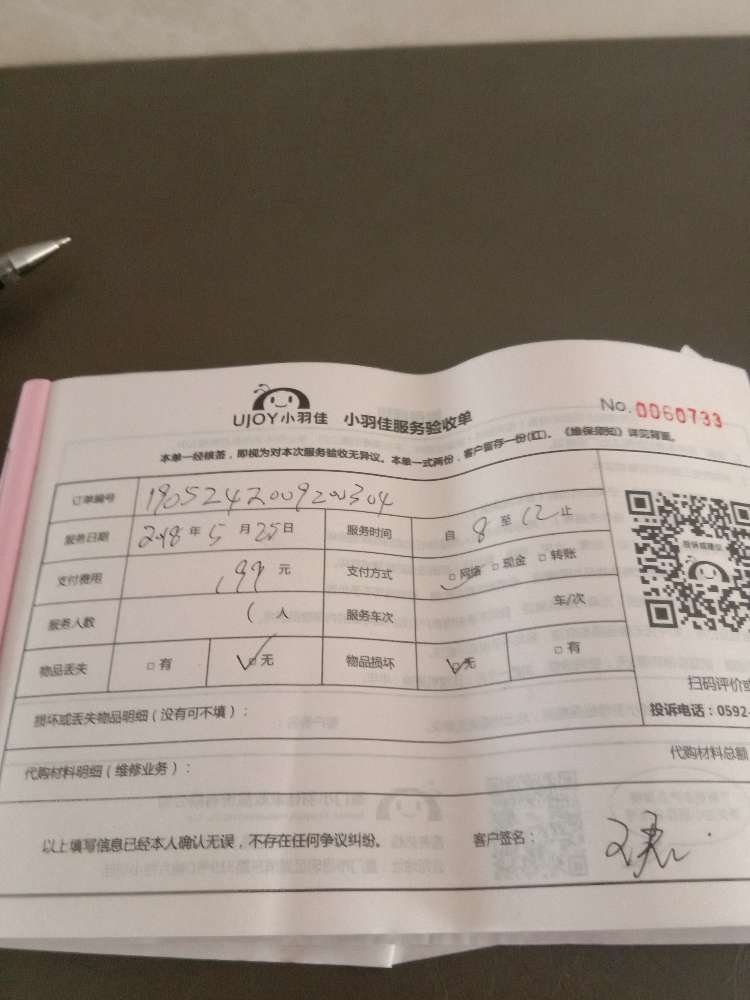 UJOY小羽佳 小羽佳服务验收单 No. 0060733
本单一经核签，即视为对本次服务验收无异议。本单一式两份，客户留存一份(红)。《维保须知》详见背面。
订单编号 1805242009200304
服务日期 2018年5月25日 服务时间 自8至12止
支付费用 199元 支付方式 □网络 □现金 □转账
服务人数 1人 服务车次 车/次
物品丢失 □有 ☑无 物品损坏 ☑无 □有
投诉或建议
扫码评价或
投诉电话：0592-
损坏或丢失物品明细（没有可不填）：
代购材料明细（维修业务）： 代购材料总额
以上填写信息已经本人确认无误，不存在任何争议纠纷。 客户签名：